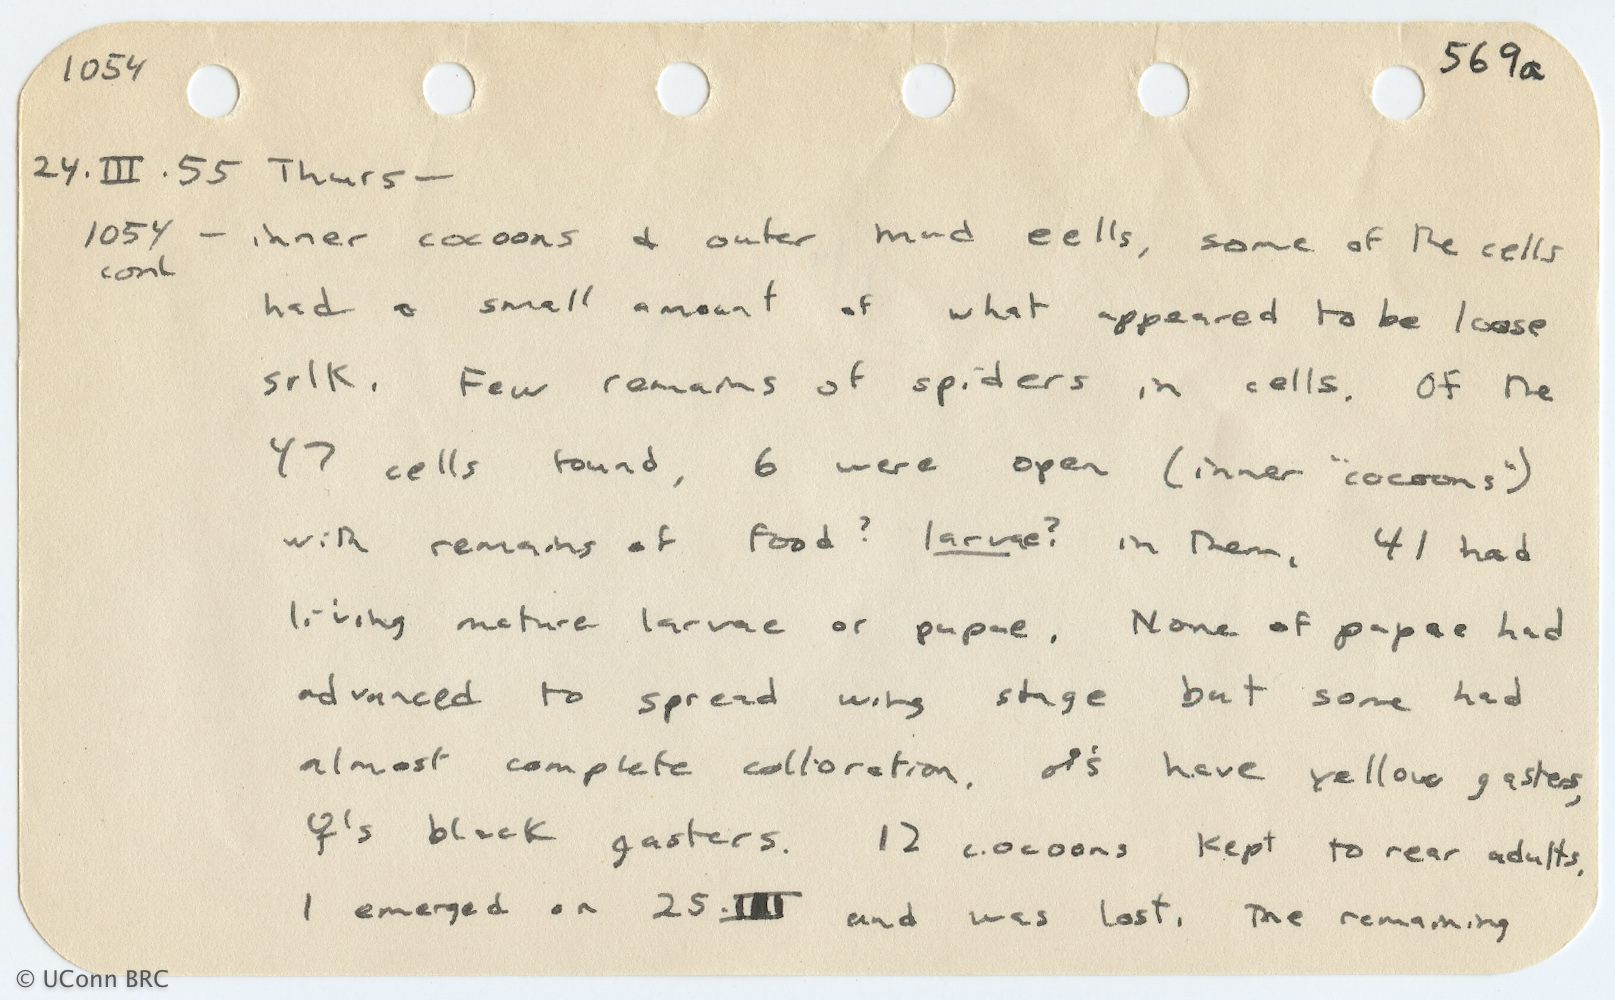 1054
569a
24.III.55 Thurs—
1054 — inner cocoons & outer mud cells, some of the cells
cont
had a small amount of what appeared to be loose
silk. Few remains of spiders in cells. Of the
47 cells found, 6 were open (inner "cocoons")
with remains of food? larvae? in them, 41 had
living mature larvae or pupae. None of pupae had
advanced to spread wing stage but some had
almost complete colloration. ♂'s have yellow gasters,
♀'s black gasters. 12 cocoons kept to rear adults.
1 emerged on 25.III and was lost. The remaining
© UConn BRC